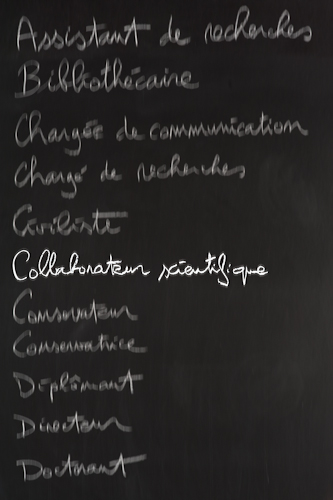 Assistant de recherches
Bibliothécaire
Chargée de communication
Chargé de recherches
Civiliste
Collaborateur scientifique
Conservateur
Conservatrice
Diplômant
Directeur
Doctorant